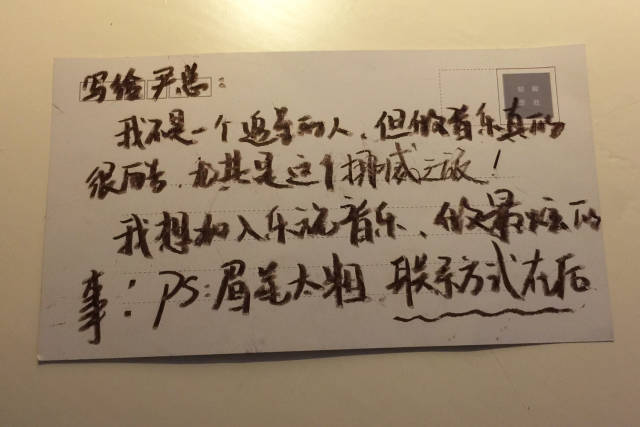 写给尹总:
我不是一个追星的人,但做音乐真的
很厉害,尤其是这个挪威之旅!
我想加入乐视音乐、做最炫的
事!PS:眉笔太粗 联系方式在后